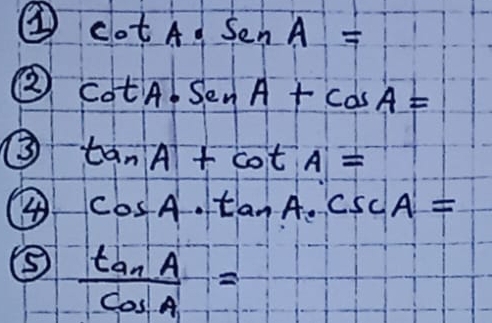 ① cot A . Sen A =
② cot A . Sen A + cos A =
③ tan A + cot A =
④ cos A . tan A . csc A =
⑤ tan A
cos A =